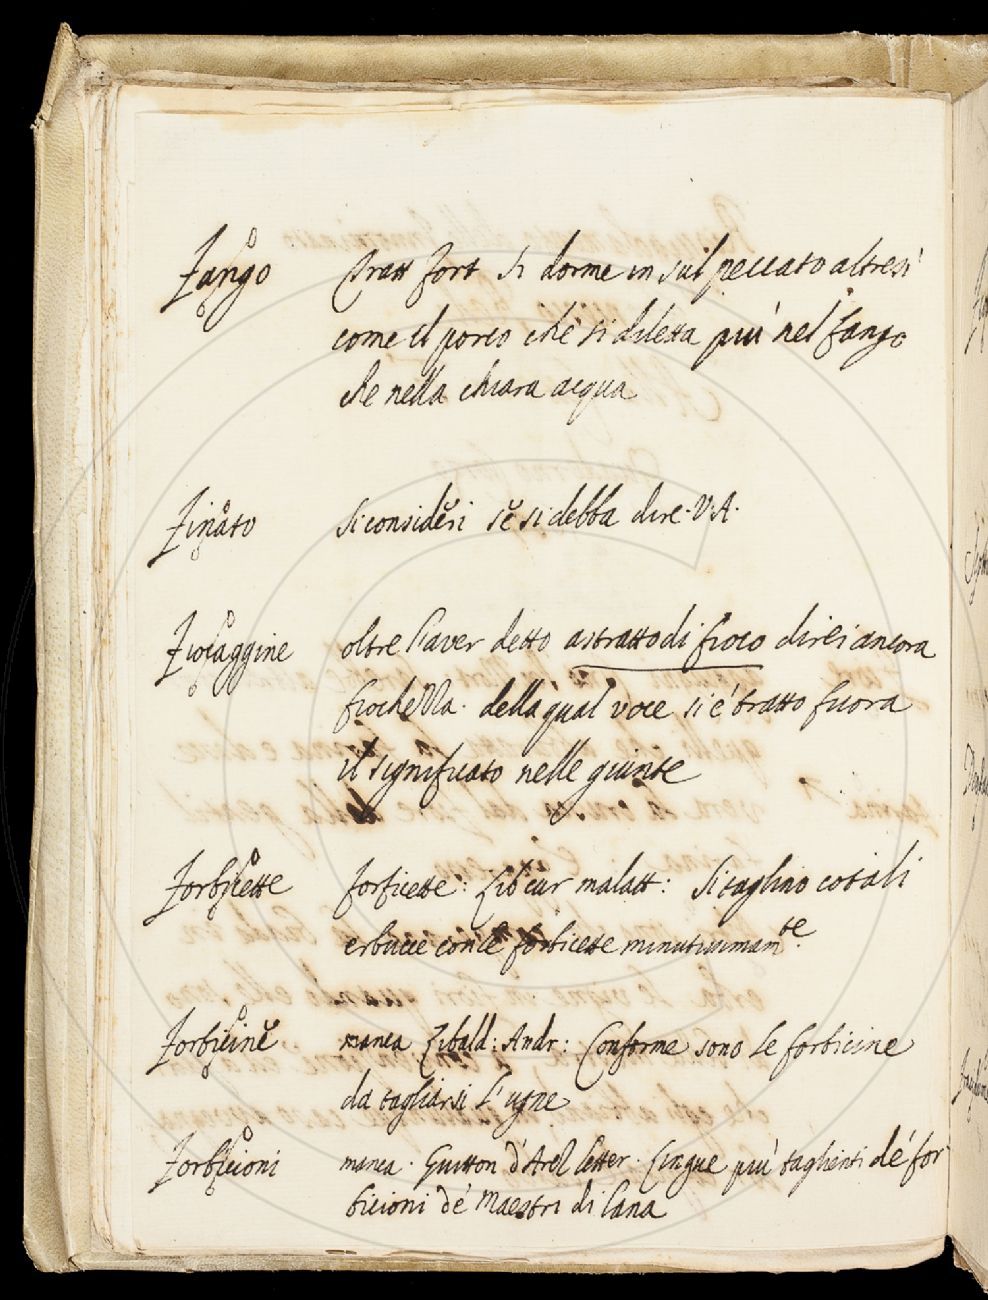 Fango Tratt fort Si dorme in sul peccato altresì
come il porco che si diletta piu nel fango
che nella chiara acqua
Finato Si consideri se si debba dire. V. A.
Fiocaggine oltre l'aver detto astratto di fioco direi ancora
fiochezza. della qual voce si é tratto fuora
il significato nelle giunte
Forbicette forficette: Lib cur malatt: Si taglino cotali
erbucce con le forbicette minutissimamte.
Forbicine manca Zibald: Andr: Conforme sono le forbicine
da tagliarsi l'ugne
Forbicioni manca. Guitton d'Arez letter. Lingue più taglienti de' for
bicioni de' Maestri di lana